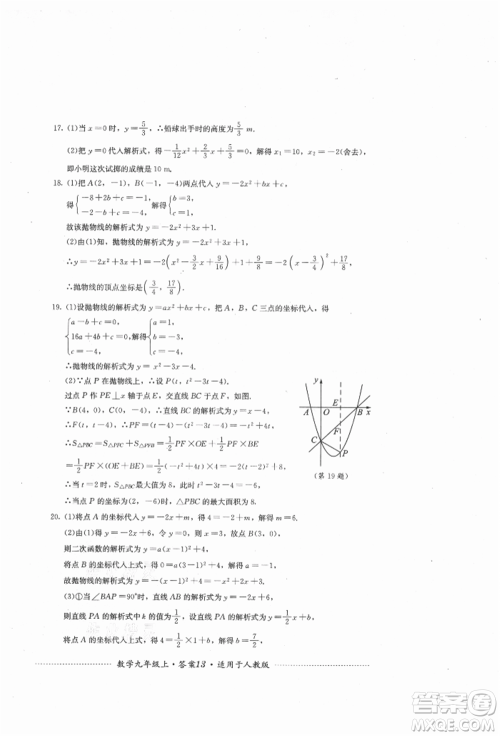 17. (1)当 x=0 时, y=5/3, ∴铅球出手时的高度为 5/3 m.
(2)把 y=0 代入解析式,得 -1/12 x²+2/3 x+5/3=0,解得 x₁=10, x₂=-2(舍去),
即小明这次试掷的成绩是 10 m.
18. (1)把 A(2,-1), B(-1,-4)两点代入 y=-2x²+bx+c,
得{-8+2b+c=-1, -2-b+c=-4, 得{b=3, c=1.
故该抛物线的解析式为 y=-2x²+3x+1.
(2)由(1)知,抛物线的解析式为 y=-2x²+3x+1,
∴y=-2x²+3x+1=-2(x²-3/2 x+9/16)+1+9/8=-2(x-3/4)²+17/8.
∴抛物线的顶点坐标是(3/4, 17/8).
19. (1)设抛物线的解析式为 y=ax²+bx+c,把 A、B、C 三点的坐标代入,得
{a-b+c=0, 16a+4b+c=0, c=-4, 得{a=1, b=-3, c=-4.
∴抛物线的解析式为 y=x²-3x-4.
(2)∵点 P 在抛物线上,∴设 P(t, t²-3t-4).
过点 P 作 PE⊥x 轴于点 E,交直线 BC 于点 F.
∵B(4,0), C(0,-4),∴直线 BC 的解析式为 y=x-4.
∴F(t, t-4),∴PF=(t-4)-(t²-3t-4)=-t²+4t.
∴S△PBC=S△PFC+S△PFB=1/2 PF×OE+1/2 PF×BE
=1/2 PF×(OE+BE)=1/2 PF×OB=1/2×(-t²+4t)×4=-2(t-2)²+8.
∴当 t=2 时, S△PBC 最大,此时 t²-3t-4=-6.
∴当点 P 的坐标为(2,-6)时, △PBC 的最大面积为 8.
y
A O E B x
F
C
P
(第 19 题)
20. (1)将点 A 的坐标代入 y=-2x+m,得 4=-2+m,解得 m=6.
则二次函数的解析式为 y=a(x-1)²+4,
则直线 PA 的解析式中 k 的值为 1/2,设直线 PA 的解析式为 y=1/2 x+b,
将点 A 的坐标代入,得 4=1/2+b,解得 b=7/2,
数学九年级上·答案13·适用于人教版